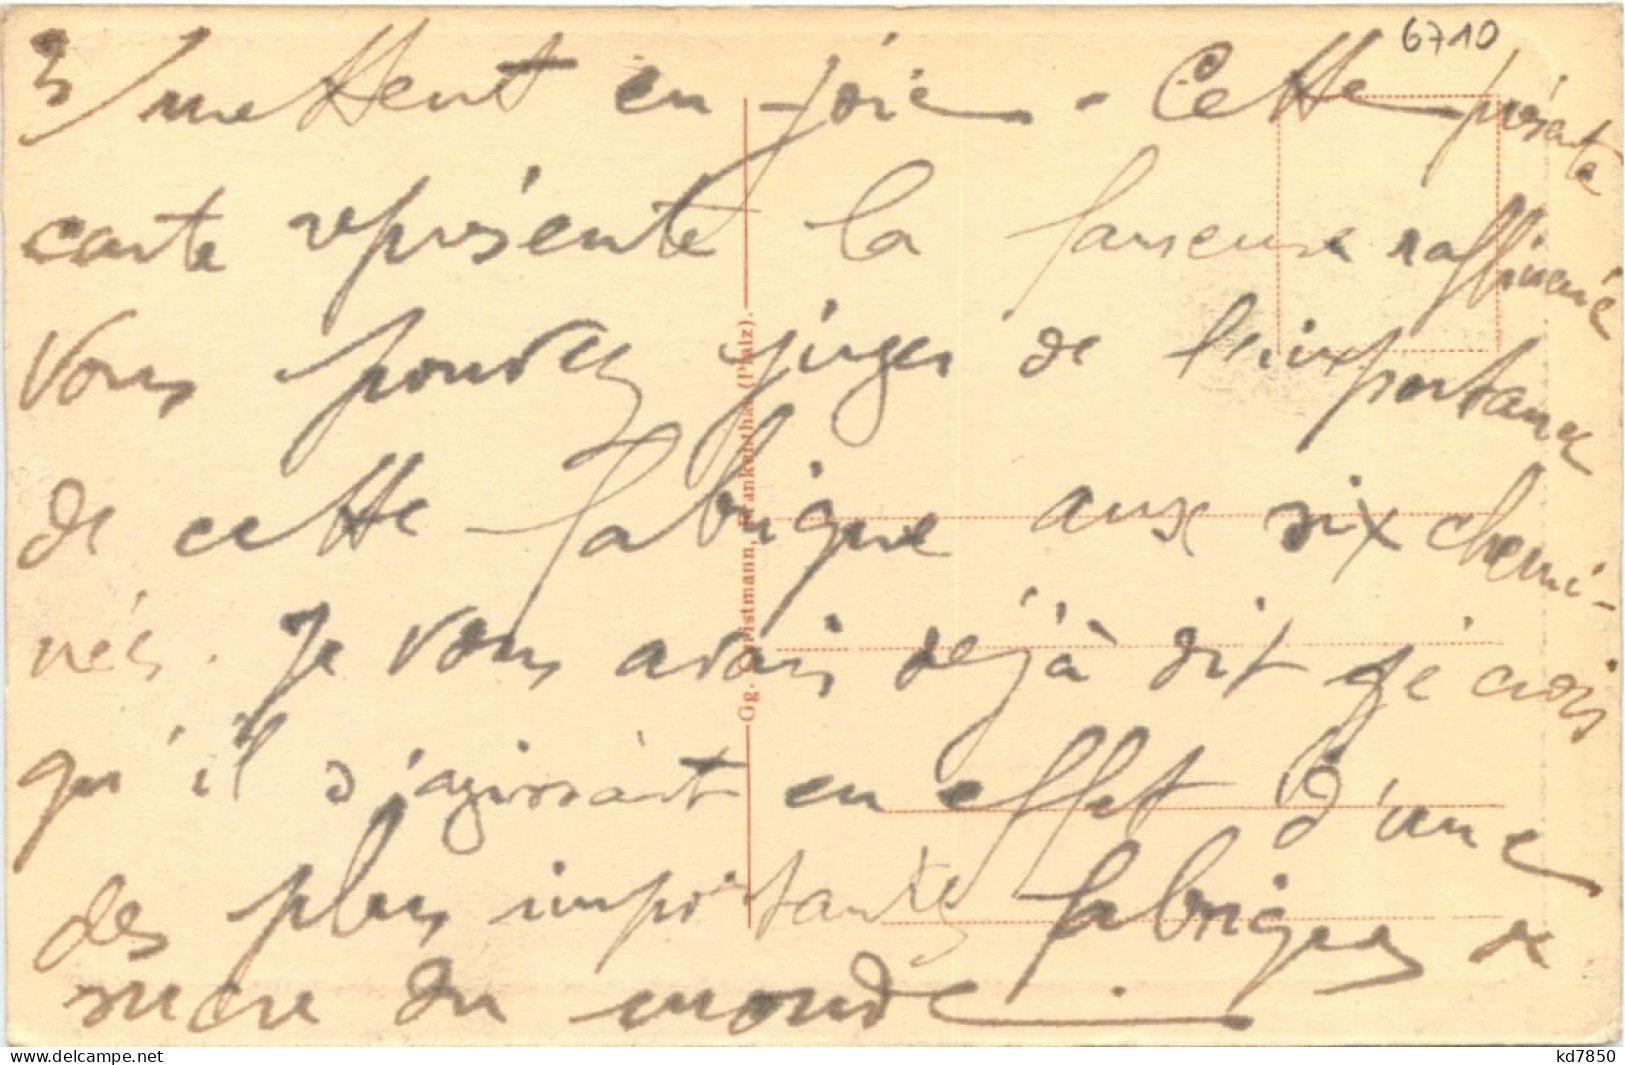 6710
3/ mettent en joie - Cette présente
carte représente la fameuse raffinerie
Vous pouvez juger de l'importance
de cette fabrique aux six chemi-
nées. Je vous avais déjà dit je crois
qu'il s'agissait en effet d'une
des plus importantes fabriques de
sucre du monde.
Og. Christmann, Frankenthal (Pfalz).
www.delcampe.net
kd7850